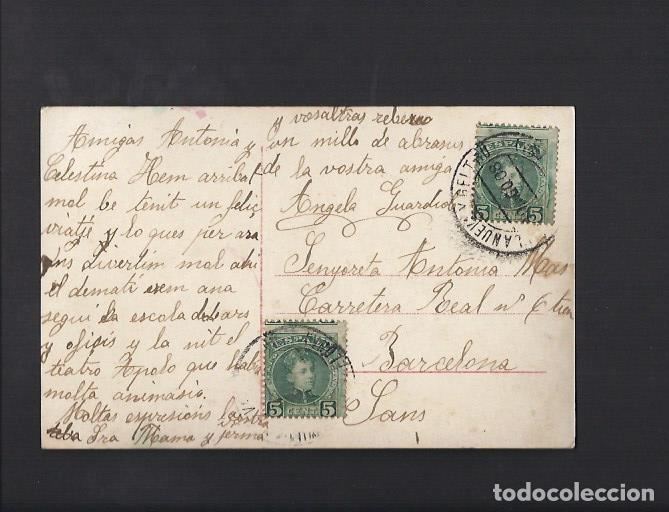 Amigas Antonia y
Celestina Hem arribat
mol be tenit un felic
viatje y lo ques per ara
ens divertim mol ahi
el dematí erem ana
segui la escola de bars
y oficis y la nit el
teatro Apolo que habia
molta animasio.
Moltas expresions la vostra
Sra Mama y jerma
y vosaltras rebeu
un millo de abrasus
de la vostra amiga
Angela Guardiola
Senyoreta Antonia Mas
Carretera Real nº 6
Barcelona
Sans
ESPAÑA
5 CENT 5
ESPAÑA
5 CENT 5
todocoleccion